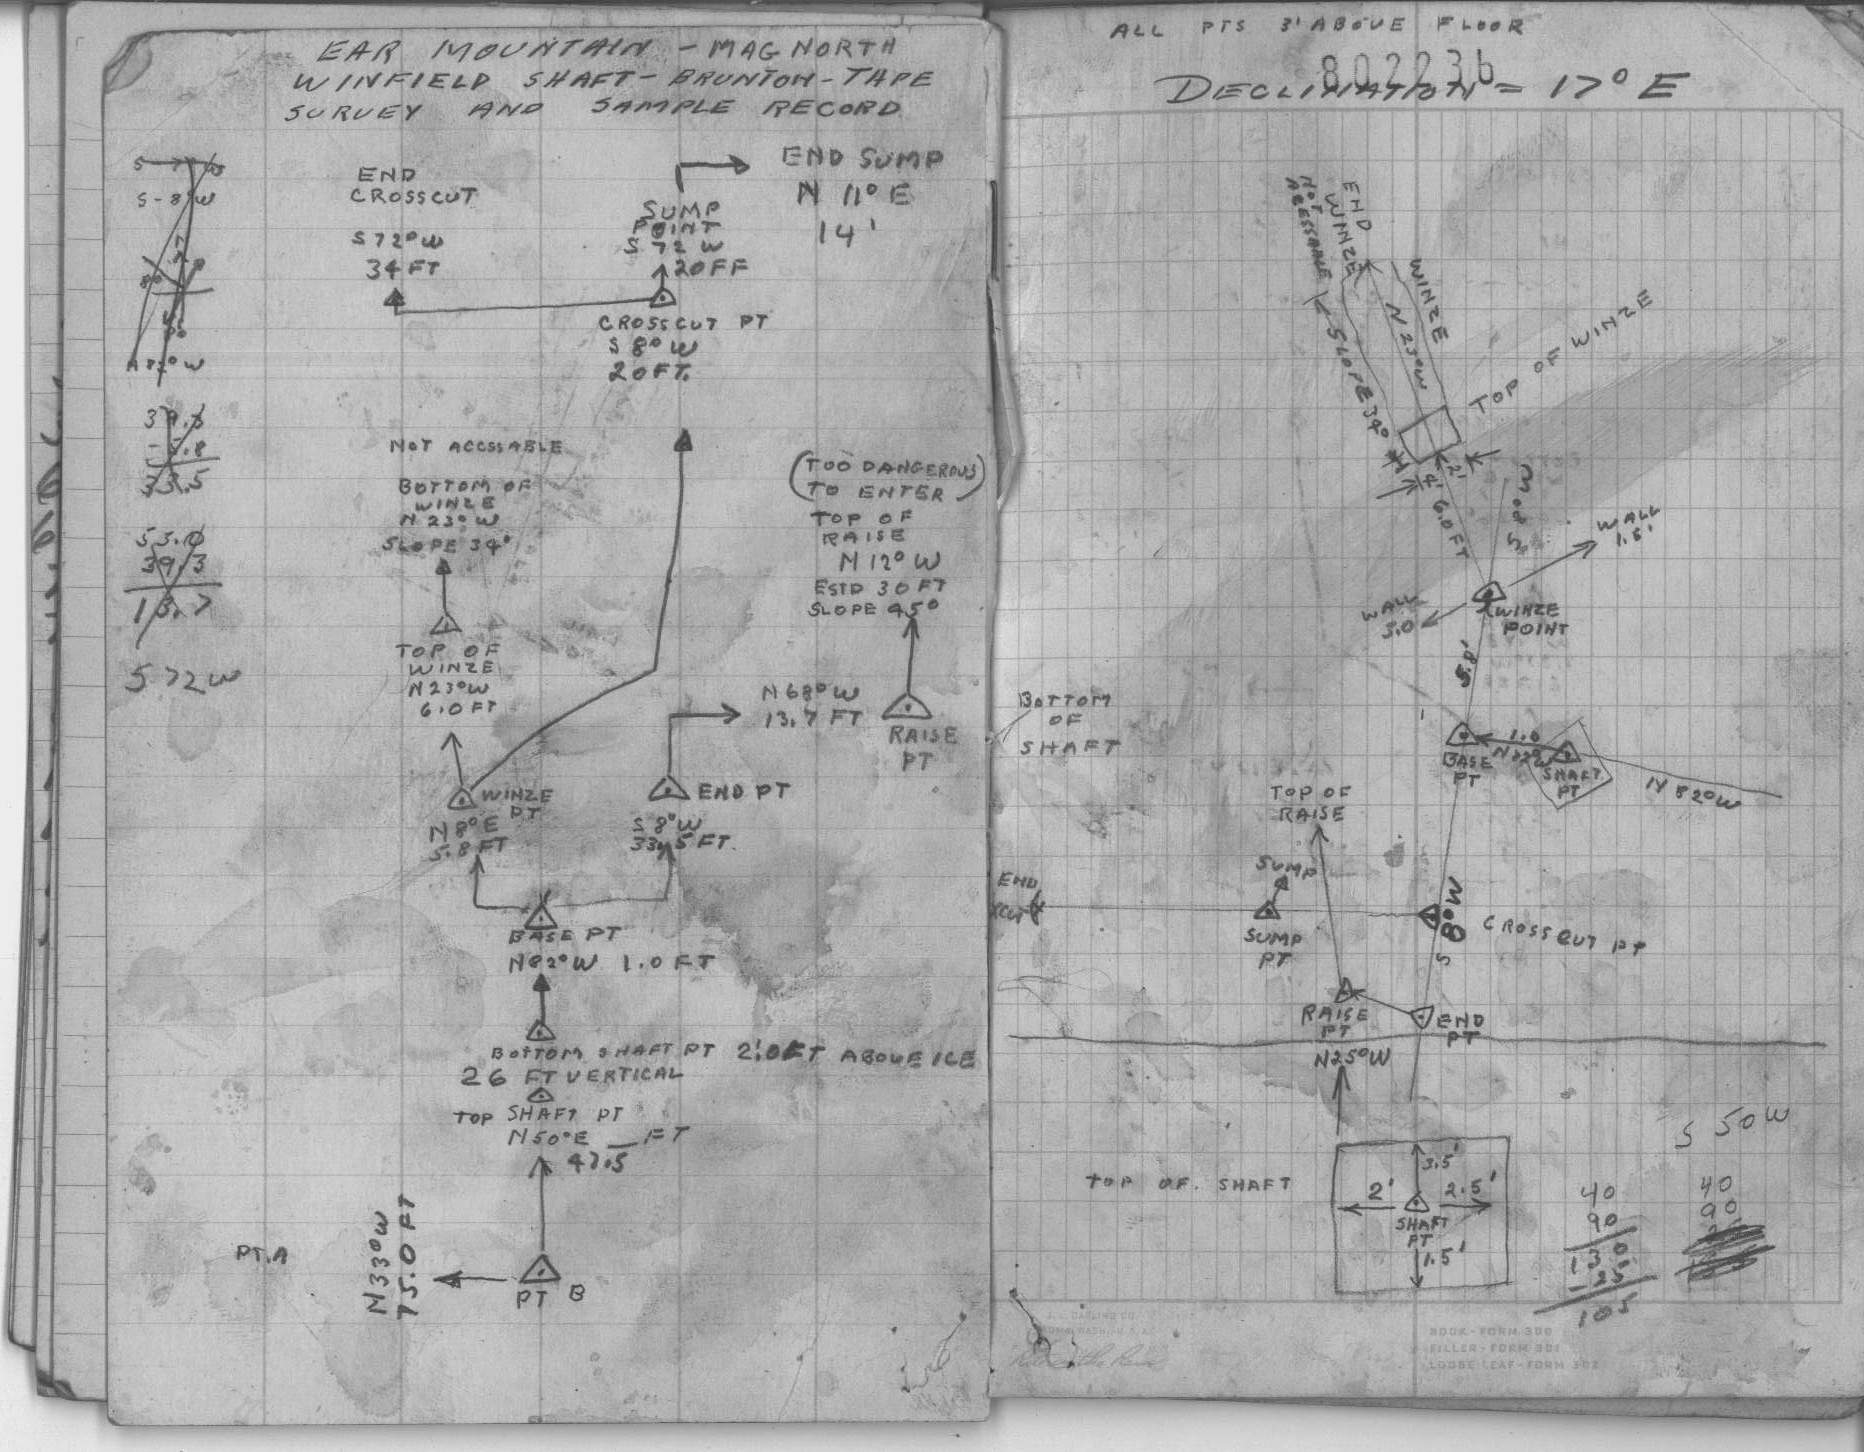 EAR MOUNTAIN - MAG NORTH
WINFIELD SHAFT - BRUNTON - TAPE
SURVEY AND SAMPLE RECORD
S-8 W
N 82° W
39.3
-5.8
33.5
53.0
39.3
13.7
S 72 W
END
CROSSCUT
S 72° W
34 FT
SUMP
POINT
S 72 W
20FF
END SUMP
N 11° E
14'
CROSSCUT PT
S 8° W
20 FT.
NOT ACSSABLE
BOTTOM OF
WINZE
N 23° W
SLOPE 34°
TOP OF
WINZE
N 23° W
6.0 FT
WINZE
PT
N 8° E
5.8 FT
(TOO DANGEROUS
TO ENTER)
TOP OF
RAISE
N 12° W
ESTD 30 FT
SLOPE 45°
N 68° W
13.7 FT
RAISE
PT
END PT
S 8° W
33.5 FT.
BASE PT
N 82° W 1.0 FT
BOTTOM SHAFT PT 2.0 FT ABOVE ICE
26 FT VERTICAL
TOP SHAFT PT
N 50° E _ FT
47.5
N 33° W
75.0 FT
PT. A
PT B
ALL PTS 3' ABOVE FLOOR
802236
DECLINATION = 17° E
END
WINZE
NOT
WINZE
N 23° W
SLOPE 34°
TOP OF WINZE
2'
4'
6.0 FT
S 80 W
WALL
1.5'
WALL
3.0
WINZE
POINT
5.8'
BOTTOM
OF
SHAFT
BASE
PT
1.0
SHAFT
PT
N 82° W
TOP OF
RAISE
SUMP
END
SUMP
PT
S 8° W
CROSSCUT PT
RAISE
PT
N 25° W
END
PT
TOP OF. SHAFT
3.5'
2'
2.5'
SHAFT
PT
1.5'
S 50 W
40
90
130
25
105
40
90
BOOK - FORM 300
FILLER - FORM 301
LOOSE LEAF - FORM 302